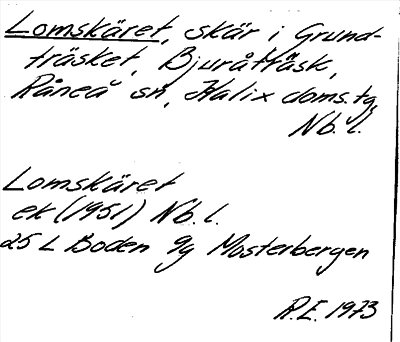 Lomskäret, skär i Grund-
träsket, Bjuråträsk,
Råneå sn, Kalix doms.tg,
Nb. l.
Lomskäret
ek (1951) Nb. l.
25 L Boden 9g Mosterbergen
R.E. 1973